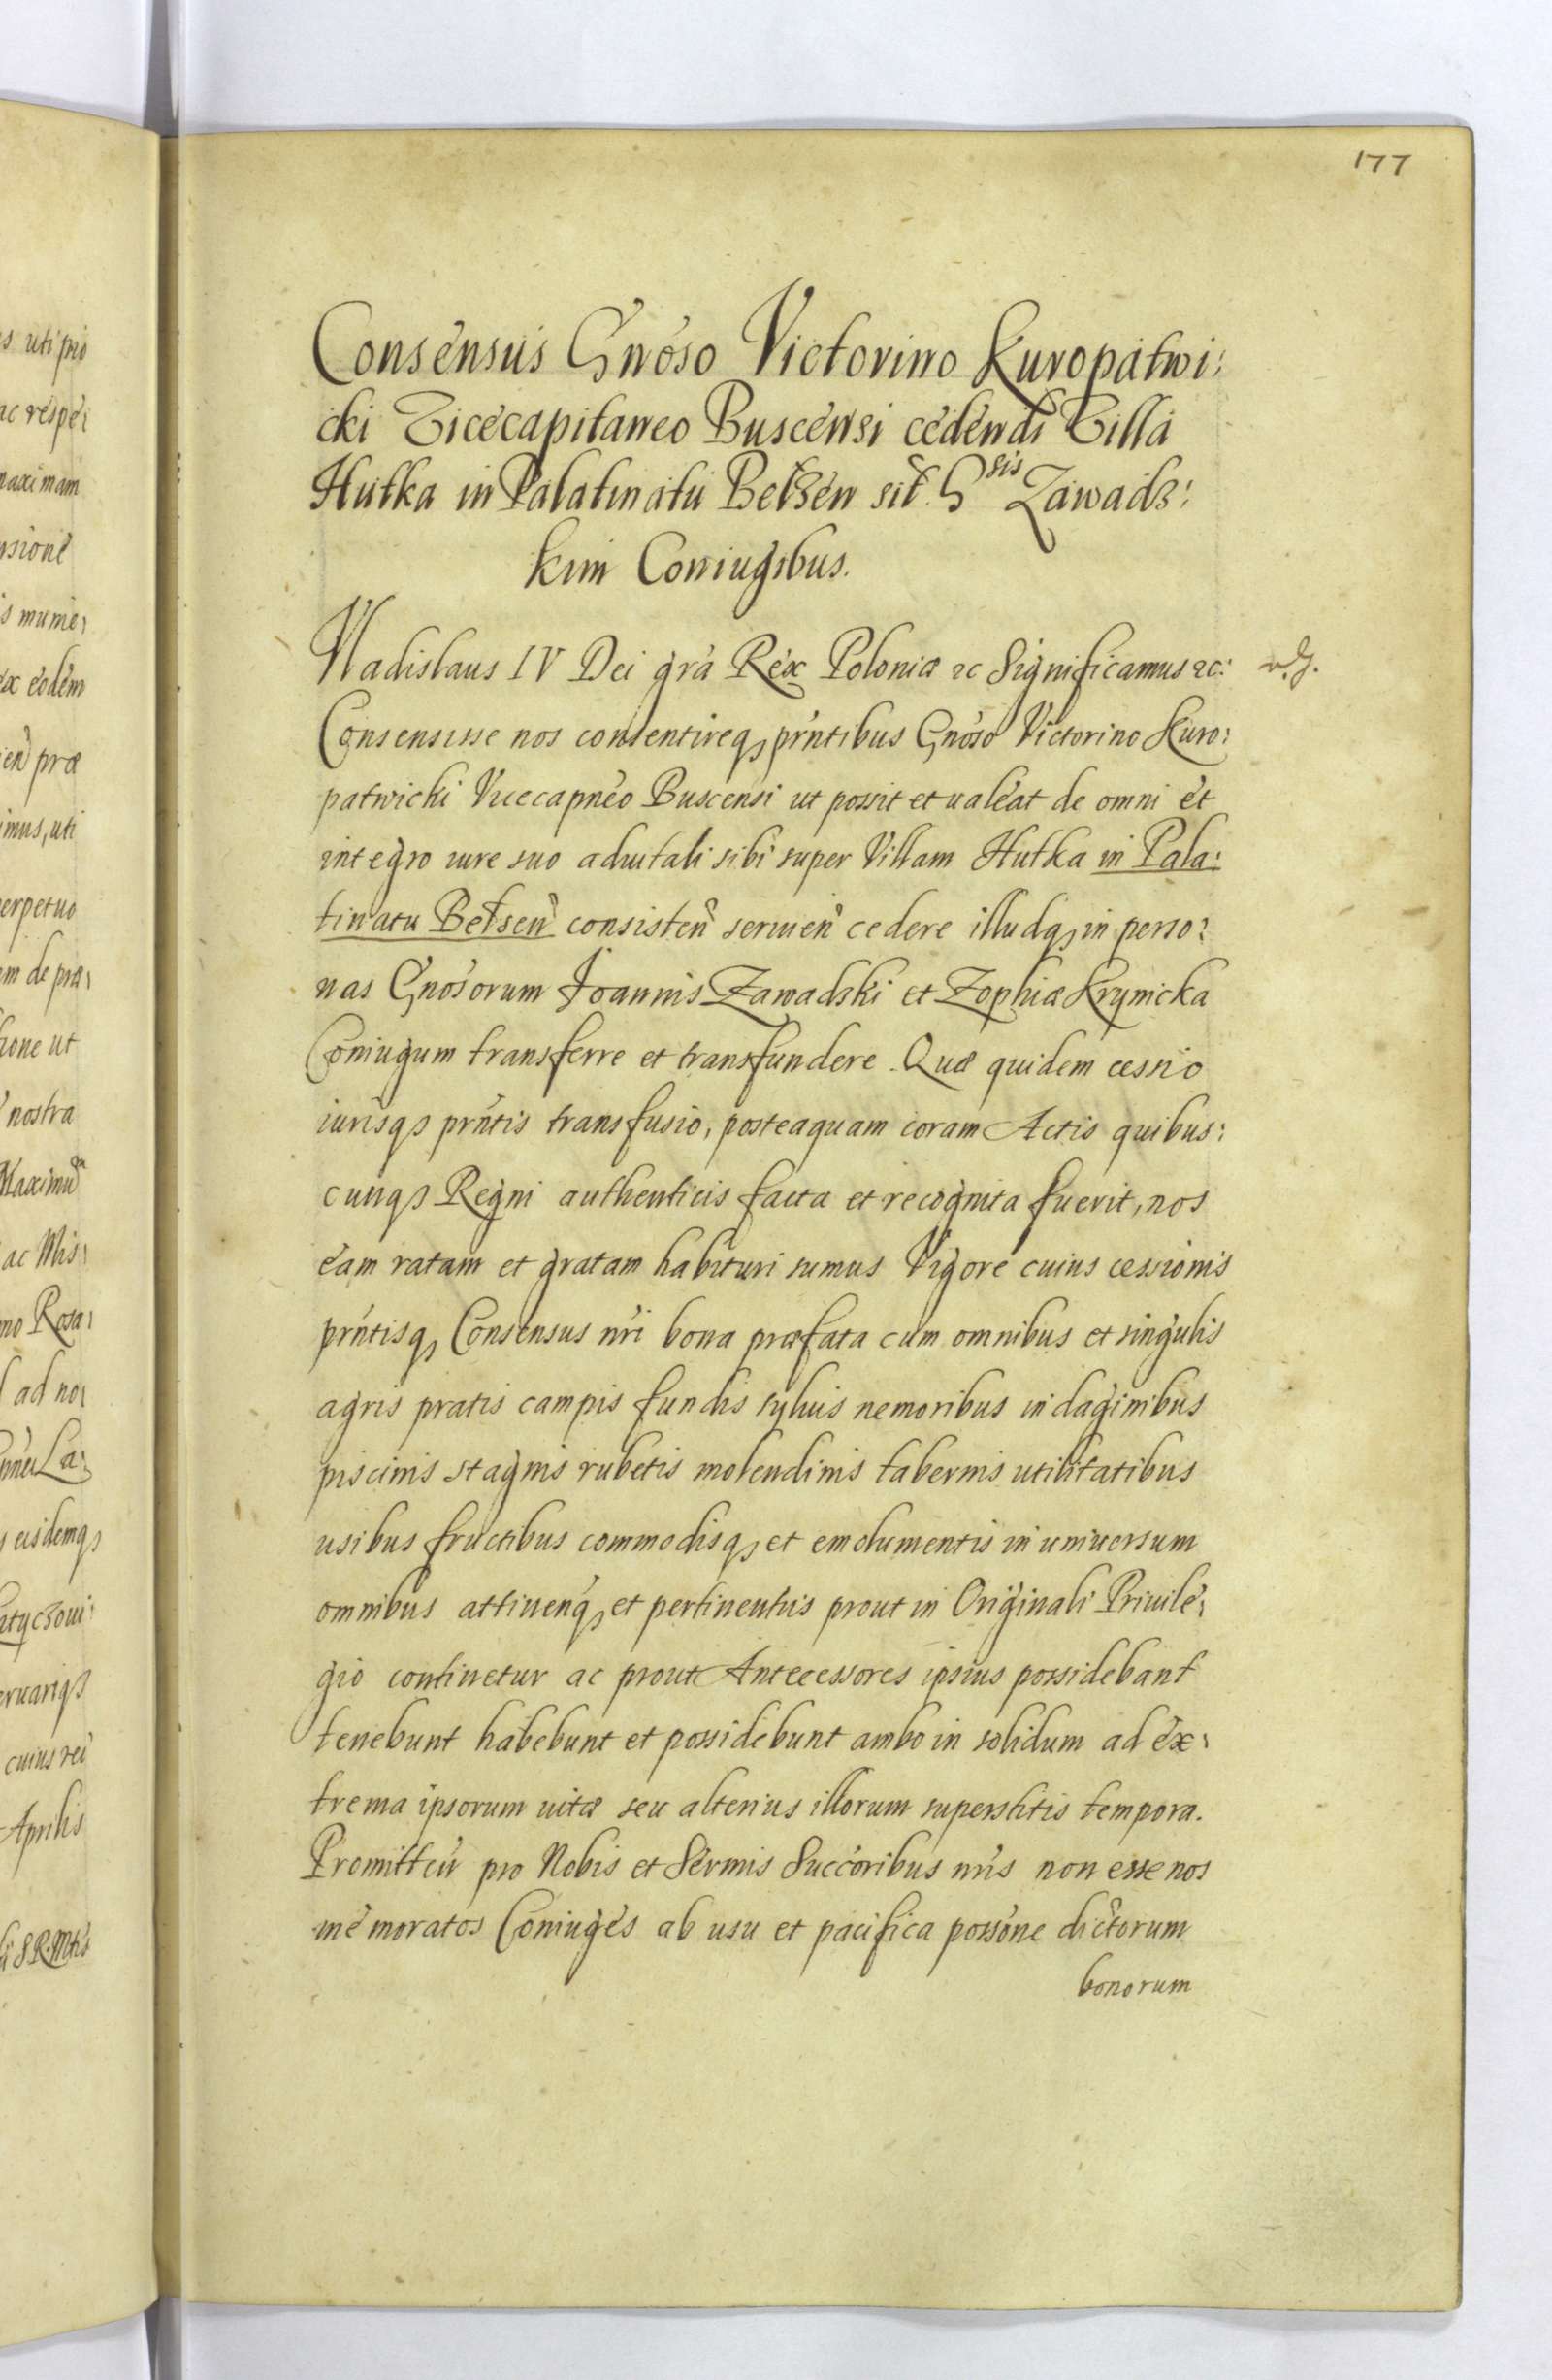 177
Consensus Gnoso Victorino Kuropatwi:
cki Vicecapitaneo Buscensi cedendi Villa
Hutka in Palatinatu Belzen sit. G sis Zawadz:
kim Coniugibus.
Vladislaus IV Dei gra Rex Poloniæ &c Significamus &c:
Consensisse nos consentireq, prntibus Gnoso Victorino Kuro:
patwicki Vicecapneo Buscensi ut possit et ualeat de omni et
integro iure suo aduitali sibi super Villam Hutka in Pala:
tinatu Belsen consisten seruien cedere illudq, in perso:
nas Gnosorum Joannis Zawadski et Zophiæ Krynicka
Coniugum transferre et transfundere. Quæ quidem cessio
iurisq, prntis transfusio, posteaquam coram Actis quibus:
cunq, Regni authenticis facta et recognita fuerit, nos
eam ratam et gratam habituri sumus Vigore cuius cessionis
prntisq, Consensus nri bona præfata cum omnibus et singulis
agris pratis campis fundis syluis nemoribus indaginibus
piscinis stagnis rubetis molendinis tabernis utilitatibus
usibus fructibus commodisq, et emolumentis in uniuersum
omnibus attinenq, et pertinentiis prout in Originali Priuile:
gio continetur ac prout Antecessores ipsius possidebant
tenebunt habebunt et possidebunt ambo in solidum ad ex:
trema ipsorum uitæ seu alterius illorum superstitis tempora.
Promitten pro Nobis et Sermis Succoribus nris non esse nos
memoratos Coniuges ab usu et pacifica possone dictorum
bonorum
s uti pro
ac respe:
maximam
nsione
s mune:
ex eodem
en præ
imus, uti
erpetuo
em de præ:
tione ut
nostra
Maximu
ac Mis:
no Rosa:
ad no:
La:
eisdemq,
cuius rei
Aprilis
S R Mtis